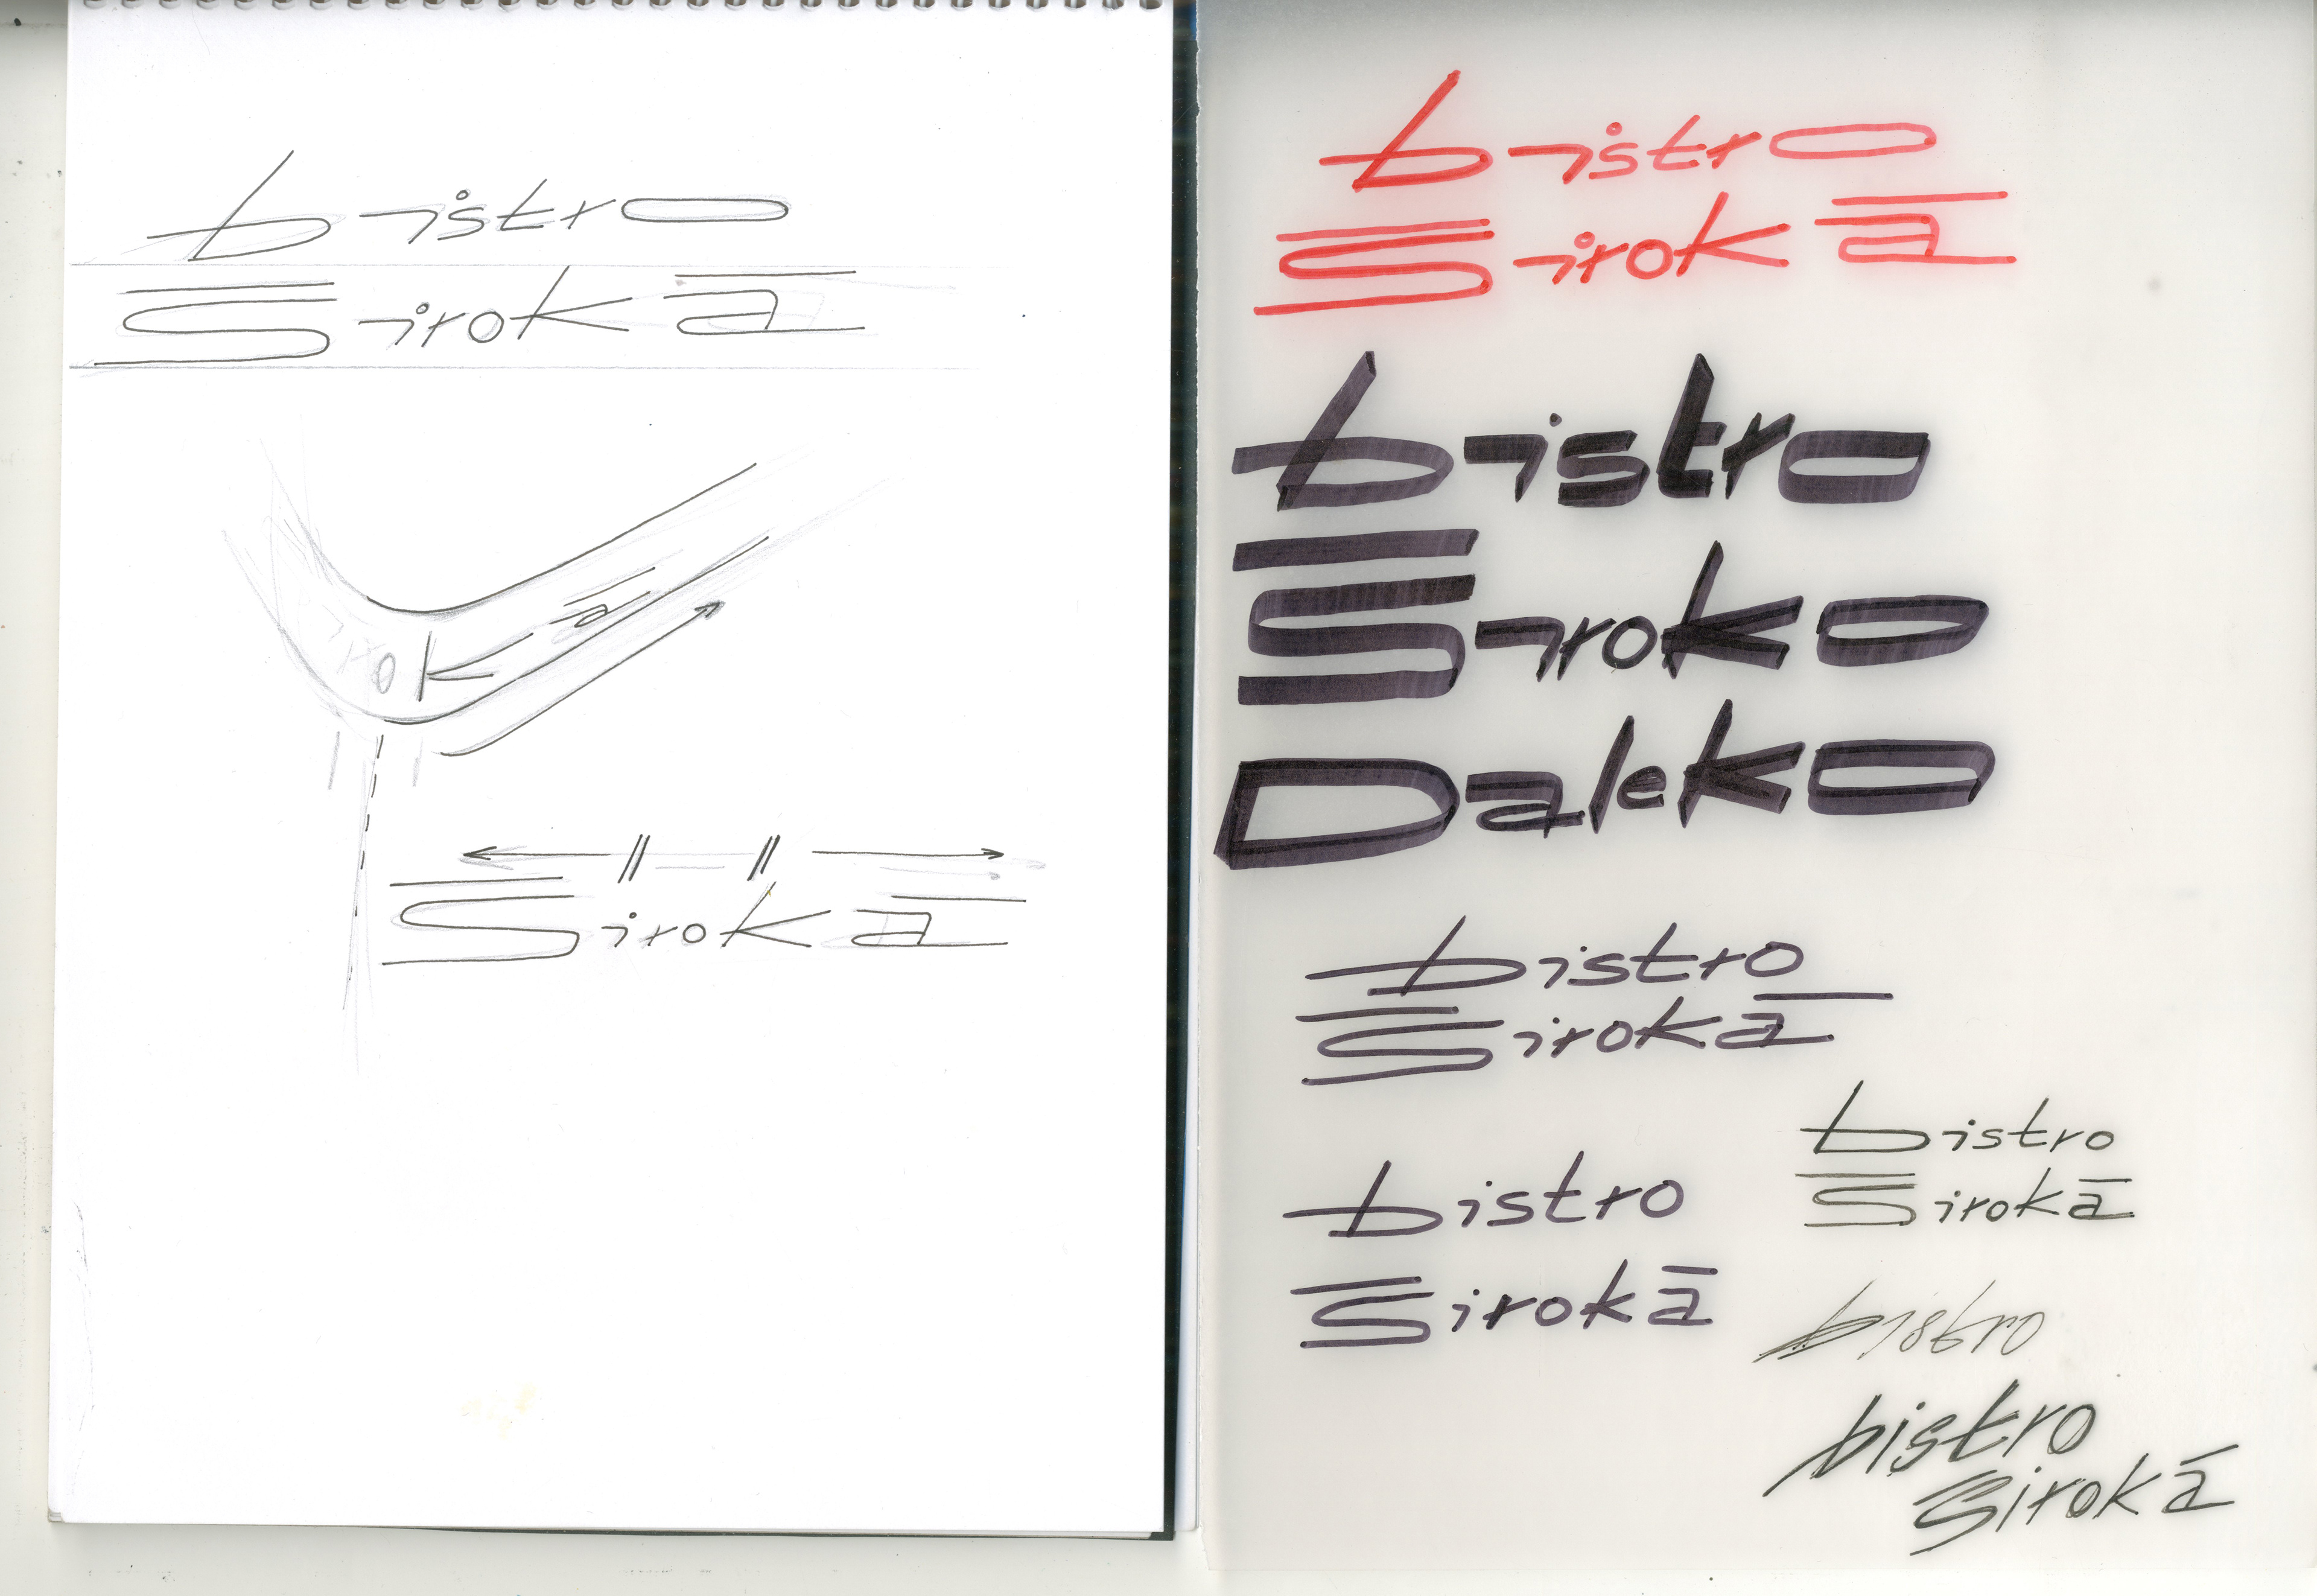 bistro
Široká
iroká
Široká
bistro
Široká
bistro
Široko
Daleko
bistro
Široká
bistro
Široká
bistro
Široká
bistro
bistro
Široká